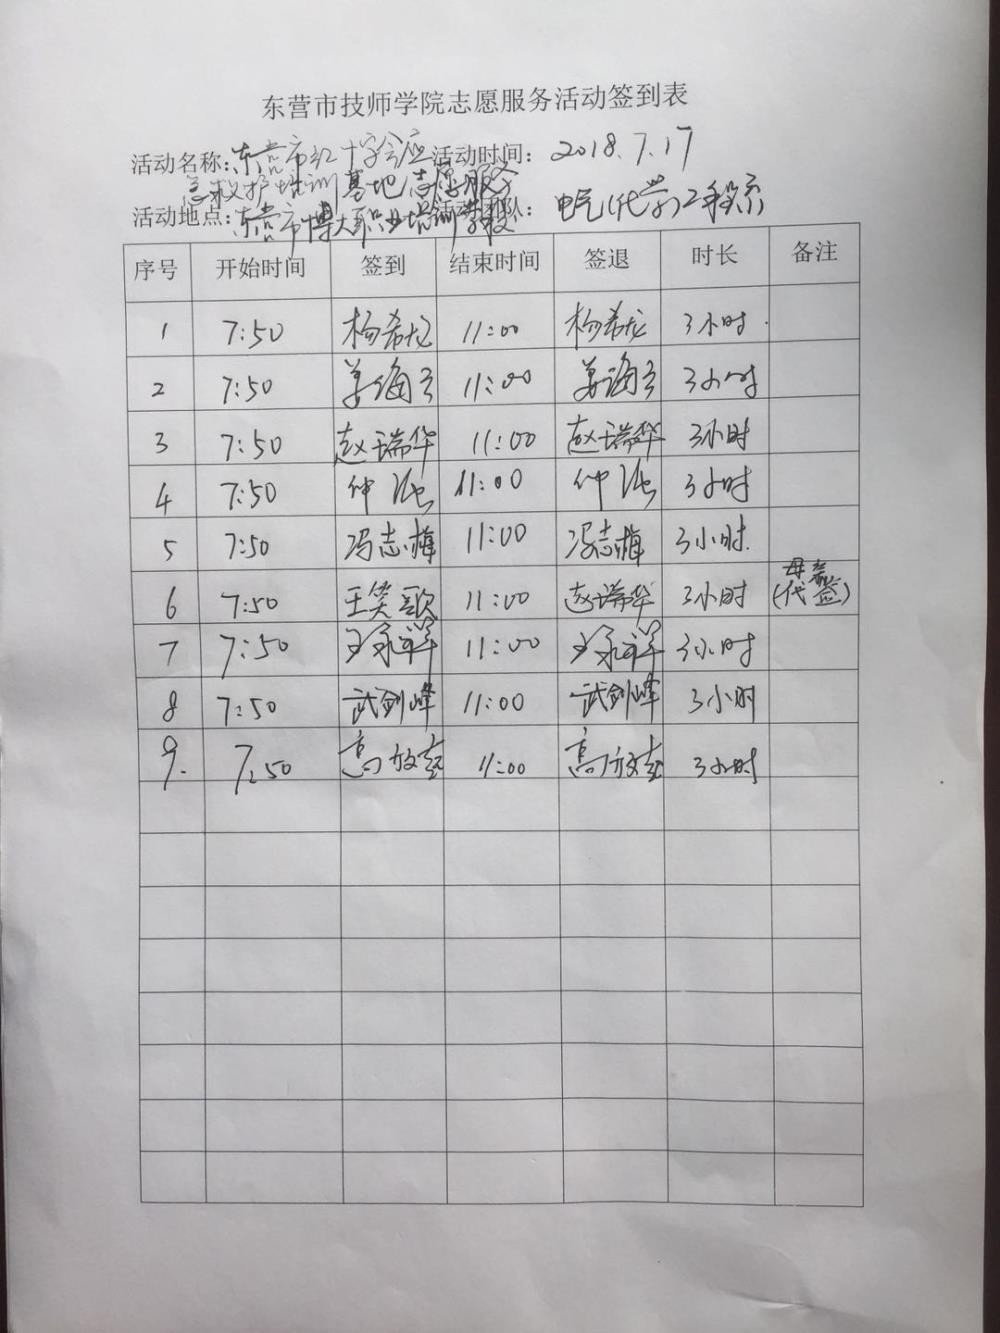 东营市技师学院志愿服务活动签到表
活动名称：东营市红十字会应 活动时间： 2018.7.17
急救护培训基地志愿服务
活动地点：东营市博大职业培训学校 队： 电气(化学)工程系
序号 开始时间 签到 结束时间 签退 时长 备注
1 7:50 杨希龙 11:00 杨希龙 3小时.
2 7:50 姜海 11:00 姜海 3小时
3 7:50 赵瑞华 11:00 赵瑞华 3小时
4 7:50 仲 11:00 仲 3小时
5 7:50 冯志梅 11:00 冯志梅 3小时.
6 7:50 王笑歌 11:00 赵瑞华 3小时 母亲(代签)
7 7:50 王永祥 11:00 王永祥 3小时
8 7:50 武剑峰 11:00 武剑峰 3小时
9. 7:50 高放 11:00 高放 3小时